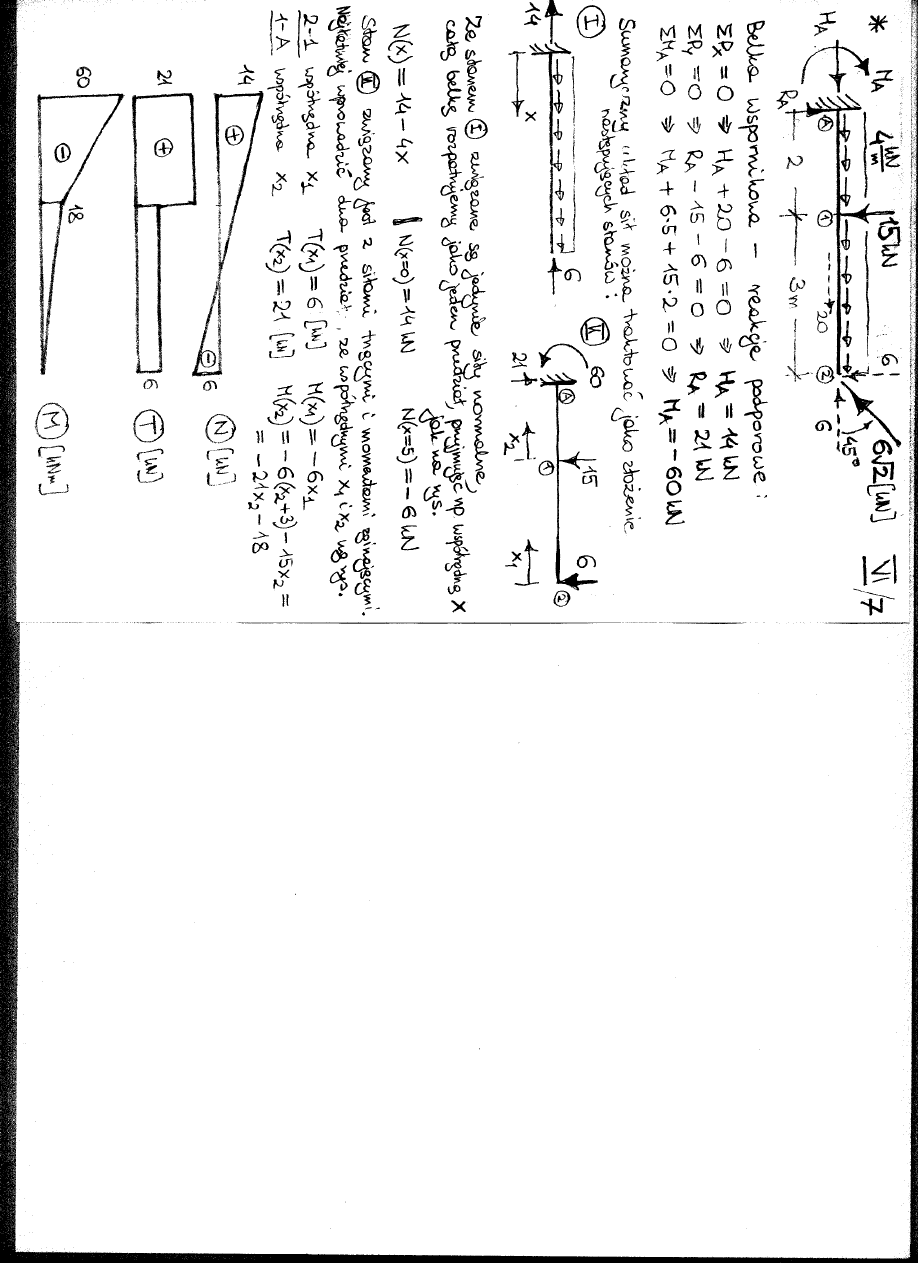 * M_A 4 kN/m 15kN 6 6√2[kN] VI/7
H_A 45°
R_A A 2 1 3m 20 2 6
Belka wspornikowa – reakcje podporowe:
ΣP_x = 0 ⇒ H_A + 20 - 6 = 0 ⇒ H_A = 14 kN
ΣP_y = 0 ⇒ R_A - 15 - 6 = 0 ⇒ R_A = 21 kN
ΣM_A = 0 ⇒ M_A + 6·5 + 15·2 = 0 ⇒ M_A = -60 kN
Sumaryczny układ sił można traktować jako złożenie
następujących stanów:
I II
14 x 6
60 21 A x_2 1 15 x_1 6 2
Ze stanem I związane są jedynie siły normalne,
całą belkę rozpatrujemy jako jeden przedział, przyjmując np współrzędną x
jak na rys.
N(x) = 14 - 4x N(x=0) = 14 kN N(x=5) = -6 kN
Stan II związany jest z siłami tnącymi i momentami zginającymi.
Najłatwiej wprowadzić dwa przedział, ze współrzędnymi x_1 i x_2 wg rys.
2-1 współrzędna x_1 T(x_1) = 6 [kN] M(x_1) = -6x_1
1-A współrzędna x_2 T(x_2) = 21 [kN] M(x_2) = -6(x_2+3) - 15x_2 =
= -21x_2 - 18
14 + - 6 N [kN]
21 + 6 T [kN]
60 - 18 M [kNm]